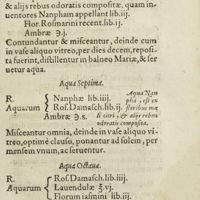 & alijs rebus odoratis compositæ, quam in-
uentores Nanpham appellant lib.iij.
Flor. Rosmarini recent.lib.ij.
Ambræ ℈.j.
Contundantur & misceantur, deinde cum
in vase aliquo vitreo, per dies decem, reposi-
ta fuerint, distillentur in balneo Mariæ, & ser
uetur aqua.
Aqua Septima.
R. Nanphæ lib.iiij.
Aquarum Ros. Damasch.lib.ij.
Ambræ ℈.s.
Aqua Nan
pha, est ex
floribus ma
li citri, & alijs rebus
odoratis composita.
Misceantur omnia, deinde in vase aliquo vi-
treo, optime clauso, ponantur ad solem, per
mensem vnum, ac seruentur.
Aqua Octaua.
R. Ros. Damasch.lib.iiij.
Aquarum Lauendulæ ℥.vj.
Florum iasmini lib.iij.